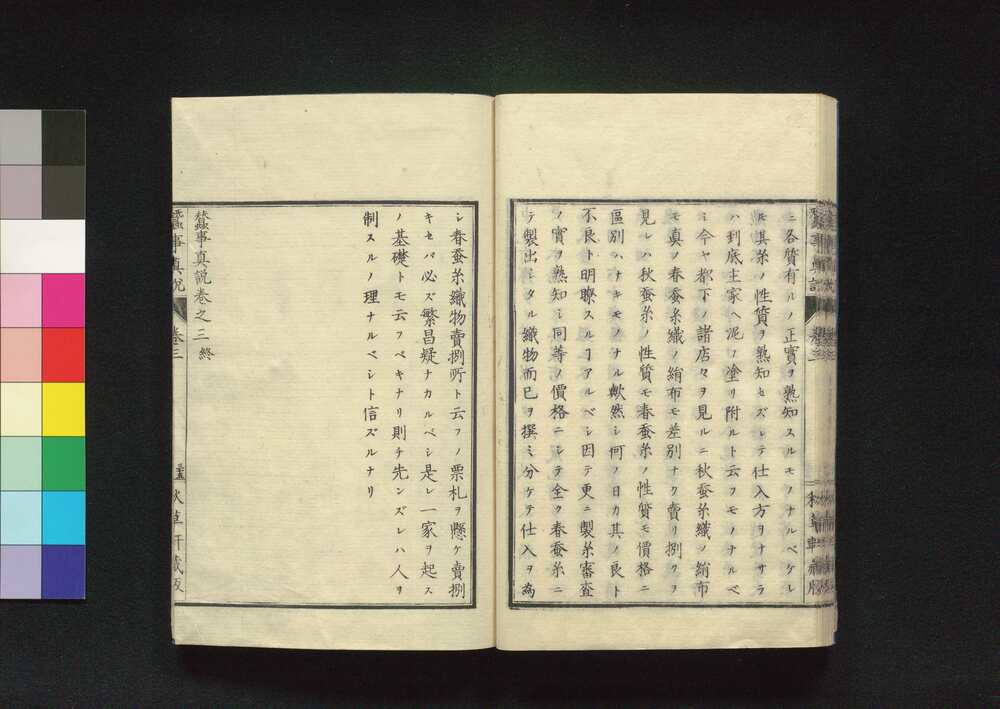 ニ各質有ルノ正實ヲ熟知スルモノナルベケレ
ㇵ其糸ノ性質ヲ熟知セズシテ仕入方ヲナサラ
ハ到底主家ヘ泥ノ塗リ附ルト云フモノナルベ
ミ今ヤ都下ノ諸店々ヲ見ルニ秋蚕糸織ノ絹布
モ真ノ春蚕糸織ノ絹布モ差別ナク賣リ捌クヲ
見レハ秋蚕糸ノ性質モ春蚕糸ノ性質モ價格ニ
區別ハナキモノナル歟然シ何ノ日カ其ノ良ト
不良ト明瞭スルヿアルベシ因テ更ニ製糸審査
ノ實ヲ熟知シ同等ノ價格ニシテ全ク春蚕糸ニ
テ製出シタル織物而已ヲ撰ミ分ケテ仕入ヲ為
シ春蚕糸織物賣捌所ト云フノ票札ヲ懸ケ賣捌
キセバ必ズ繁昌疑ナカルベシ是レ一家ヲ起ス
ノ基礎トモ云フベキナリ則チ先ンズレハ人ヲ
制スルノ理ナルベシト信ズルナリ
蠶事真説巻之三終
蠶事真説
巻三
秋草軒蔵版